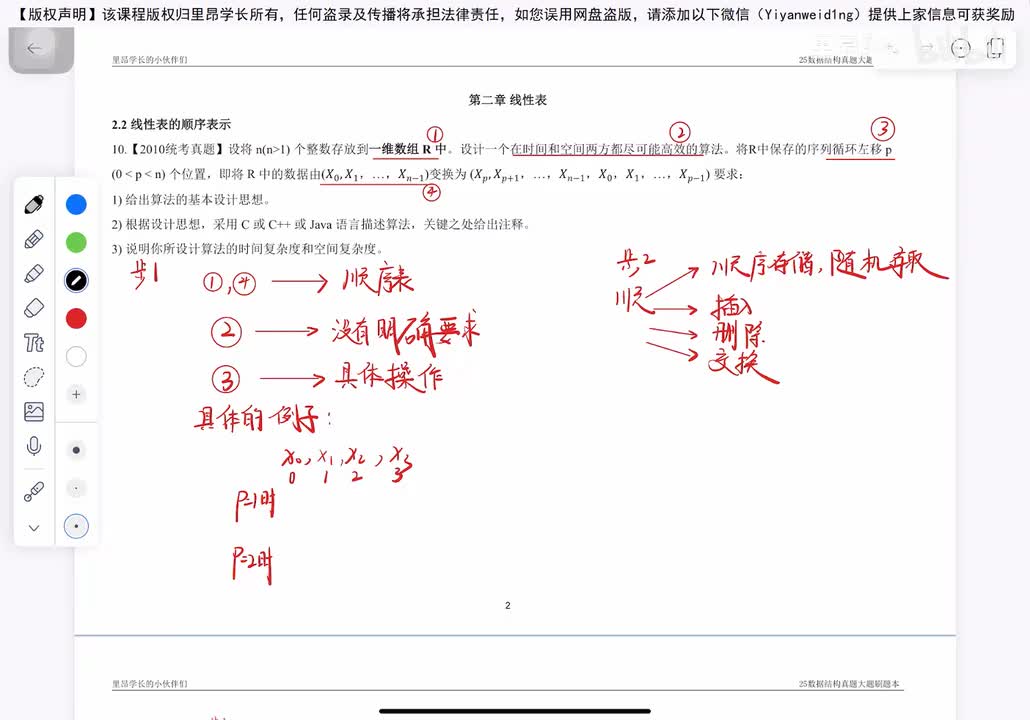 【版权声明】该课程版权归里昂学长所有，任何盗录及传播将承担法律责任，如您误用网盘盗版，请添加以下微信（Yiyanweid1ng）提供上家信息可获奖励
里昂学长的小伙伴们
25数据结构真题大题
第二章 线性表
2.2 线性表的顺序表示
① ② ③
10.【2010统考真题】设将 n(n>1) 个整数存放到一维数组 R 中。设计一个在时间和空间两方都尽可能高效的算法。将R中保存的序列循环左移 p
(0 < p < n) 个位置，即将 R 中的数据由(X₀,X₁，…，Xₙ₋₁)变换为 (Xₚ,Xₚ₊₁，…，Xₙ₋₁，X₀，X₁，…，Xₚ₋₁) 要求：
④
1) 给出算法的基本设计思想。
2) 根据设计思想，采用 C 或 C++ 或 Java 语言描述算法，关键之处给出注释。
3) 说明你所设计算法的时间复杂度和空间复杂度。
步1
①,④ → 顺序表
② → 没有明确要求
③ → 具体操作
具体的例子：
x₀, x₁, x₂, x₃
0 1 2 3
P=1时
P=2时
步2
顺 → 顺序存储，随机存取
→ 插入
→ 删除
→ 交换
Tt
2
里昂学长的小伙伴们
25数据结构真题大题刷题本